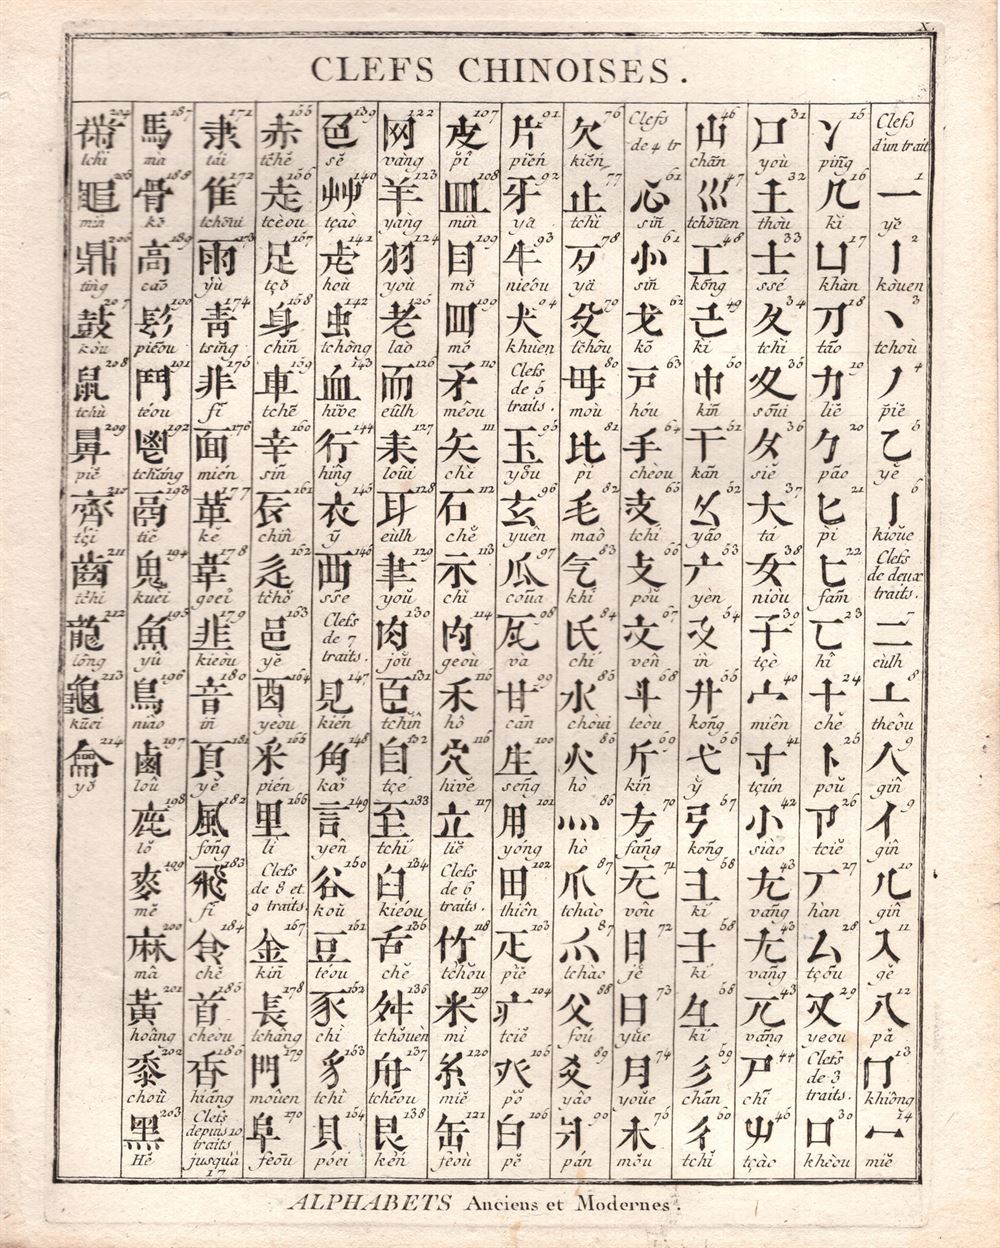 X.
CLEFS CHINOISES.
Clefs
d'un trait
一 1
yĕ
丨 2
kòuen
丶 3
tchoù
丿 4
piĕ
乙 5
yĕ
亅 6
kiŏue
Clefs
de deux
traits.
二 7
eùlh
亠 8
theôu
人 9
gîn
亻 9
gîn
儿 10
gîn
入 11
gĕ
八 12
pă
冂 13
khiōng
冖 14
miĕ
冫 15
pīng
几 16
kì
凵 17
khàn
刀 18
tāo
力 19
liĕ
勹 20
pāo
匕 21
pì
匚 22
fam
匸 23
hì
十 24
chĕ
卜 25
poŭ
卩 26
tciĕ
厂 27
hàn
厶 28
又 29
yeou
Clefs
de 3
traits.
口 30
khèou
囗 31
yoù
土 32
thoù
士 33
ssé
夂 34
tchi
夊 35
soūi
夕 36
siĕ
大 37
tá
女 38
niòu
子 39
tçè
宀 40
miên
寸 41
tçún
小 42
siào
尢 43
vāng
尣 43
vāng
兀 43
vāng
尸 44
chī
屮 45
tçào
山 46
chān
巛 47
tchōuen
工 48
kōng
己 49
kì
巾 50
kīn
干 51
kān
幺 52
yāo
广 53
yèn
廴 54
ìn
廾 55
kōng
弋 56
ỳ
弓 57
kōng
彐 58
kí
彑 58
kí
彡 59
chān
彳 60
tchĭ
Clefs
de 4 tr
心 61
sīn
小 61
sīn
戈 62
kō
戸 63
hóu
手 64
chèou
支 65
tchi
攴 66
poŭ
文 67
vên
斗 68
teòu
斤 69
kīn
方 70
fāng
无 71
voû
日 72
jĕ
曰 73
yŭe
月 74
yoŭe
木 75
mŏu
欠 76
kién
止 77
tchì
歹 78
yă
殳 79
tchôu
毋 80
moù
比 81
pì
毛 82
maô
气 83
khí
氏 84
chí
水 85
chòui
火 86
hò
灬 86
hò
爪 87
tchào
爫 87
tchào
父 88
foú
爻 89
yáo
爿 90
pán
片 91
pién
牙 92
yâ
牛 93
nieôu
犬 94
khuèn
Clefs
de 5
traits.
玉 95
玄 96
yuên
瓜 97
coūa
瓦 98
và
甘 99
cān
生 100
sēng
用 101
yóng
田 102
thiên
疋 103
piĕ
疒 104
tciĕ
癶 105
pŏ
白 106
pĕ
皮 107
pî
皿 108
mìn
目 109
mŏ
罒 109
mŏ
矛 110
mêou
矢 111
chì
石 112
chĕ
示 113
chì
禸 114
geoù
禾 115
hô
穴 116
hiŭe
立 117
liĕ
Clefs
de 6
traits.
竹 118
tchŏu
米 119
mì
糸 120
miĕ
缶 121
feòu
网 122
vàng
羊 123
yàng
羽 124
yoù
老 125
laò
而 126
eûlh
耒 127
loûi
耳 128
eùlh
聿 129
yoŭ
肉 130
joŭ
臣 131
tchîn
自 132
tçé
至 133
tchí
臼 134
kiéou
舌 135
chĕ
舛 136
tchòuèn
舟 137
tchēou
艮 138
kén
色 139
sĕ
艸 140
tçaò
虍 141
hoù
虫 142
tchông
血 143
hiŭe
行 144
hîng
衣 145
ȳ
襾 146
sse
Clefs
de 7
traits.
見 147
kién
角 148
kaŏ
言 149
yên
谷 150
koŭ
豆 151
téou
豕 152
chì
豸 153
tchì
貝 154
póei
赤 155
tchĕ
走 156
tcèou
足 157
tçŏ
身 158
chīn
車 159
tchē
辛 160
sīn
辰 161
chîn
辵 162
tchŏ
邑 163
yĕ
酉 164
yeòu
釆 165
pién
里 166
lì
Clefs
de 8 et
9 traits.
金 167
kīn
長 178
tchâng
門 179
môuen
阜 170
feōu
隶 171
tái
隹 172
tchoūi
雨 173
yù
靑 174
tsīng
非 175
fī
面 176
mién
革 177
kĕ
韋 178
goeî
韭 179
kieòu
音 180
īn
頁 181
yĕ
風 182
fōng
飛 183
fī
食 184
chĕ
首 185
cheòu
香 186
hiāng
Clefs
depuis 10
traits
jusqu'à
17
馬 187
mà
骨 188
kŏ
高 189
caō
髟 190
piēou
鬥 191
téou
鬯 192
tcháng
鬲 193
liĕ
鬼 194
kuèi
魚 195
yû
鳥 196
niào
鹵 197
loù
鹿 198
lŏ
麥 199
mĕ
麻 200
mâ
黃 201
hoâng
黍 202
choù
黑 203
Hĕ
黹 204
tchì
黽 205
mìn
鼎 206
tìng
鼓 207
kòu
鼠 208
tchù
鼻 209
piĕ
齊 210
tçî
齒 211
tchì
龍 212
lông
龜 213
kūei
龠 214
yŏ
ALPHABETS Anciens et Modernes.